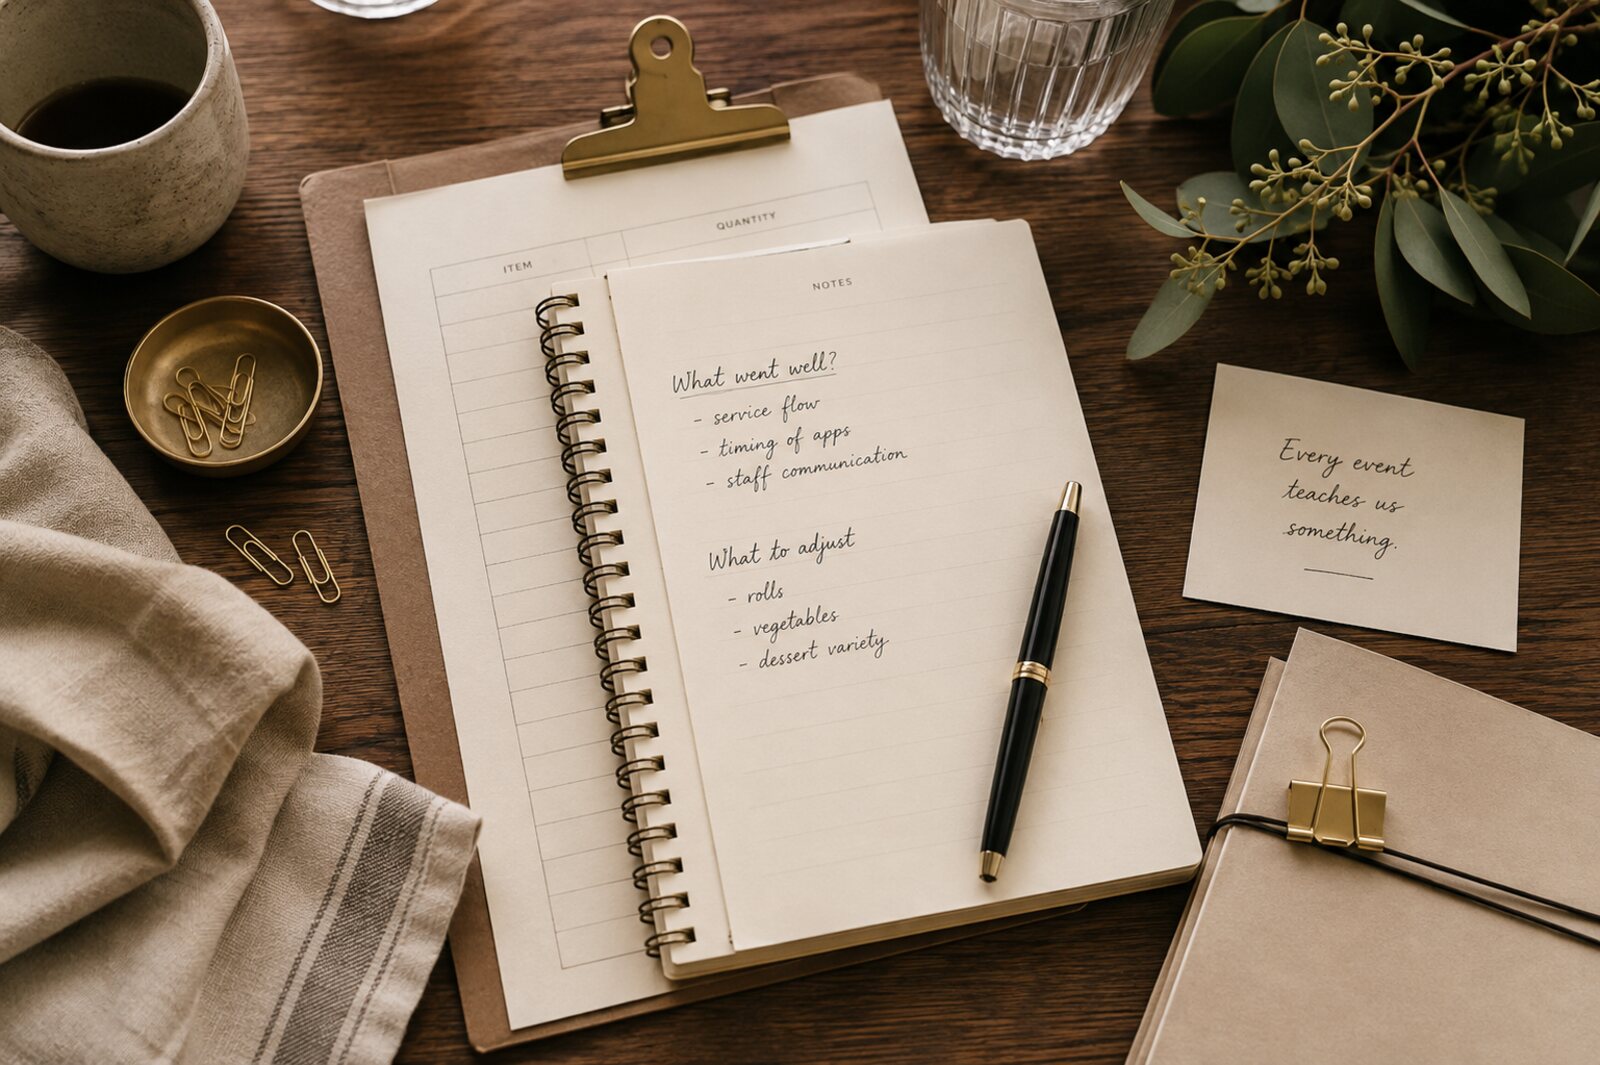 ITEM
QUANTITY
NOTES
What went well?
- service flow
- timing of apps
- staff communication
What to adjust
- rolls
- vegetables
- dessert variety
Every event
teaches us
something.